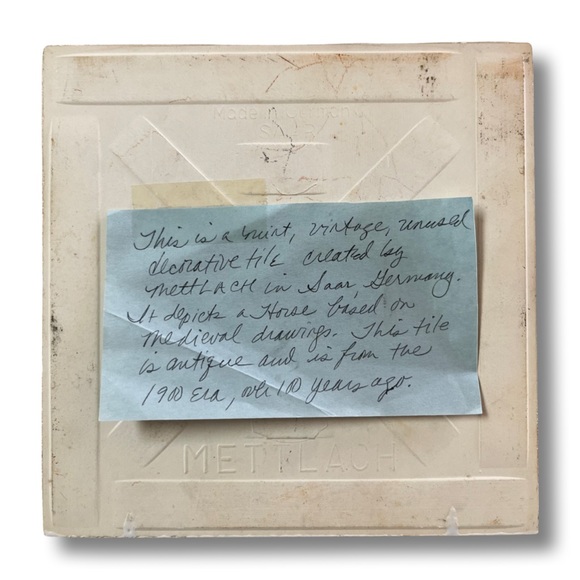 Made in
This is a mint, vintage, unused
decorative tile created by
METTLACH in Saar, Germany.
It depicts a Horse based on
medieval drawings. This tile
is antique and is from the
1900 Era, over 100 years ago.
METTLACH